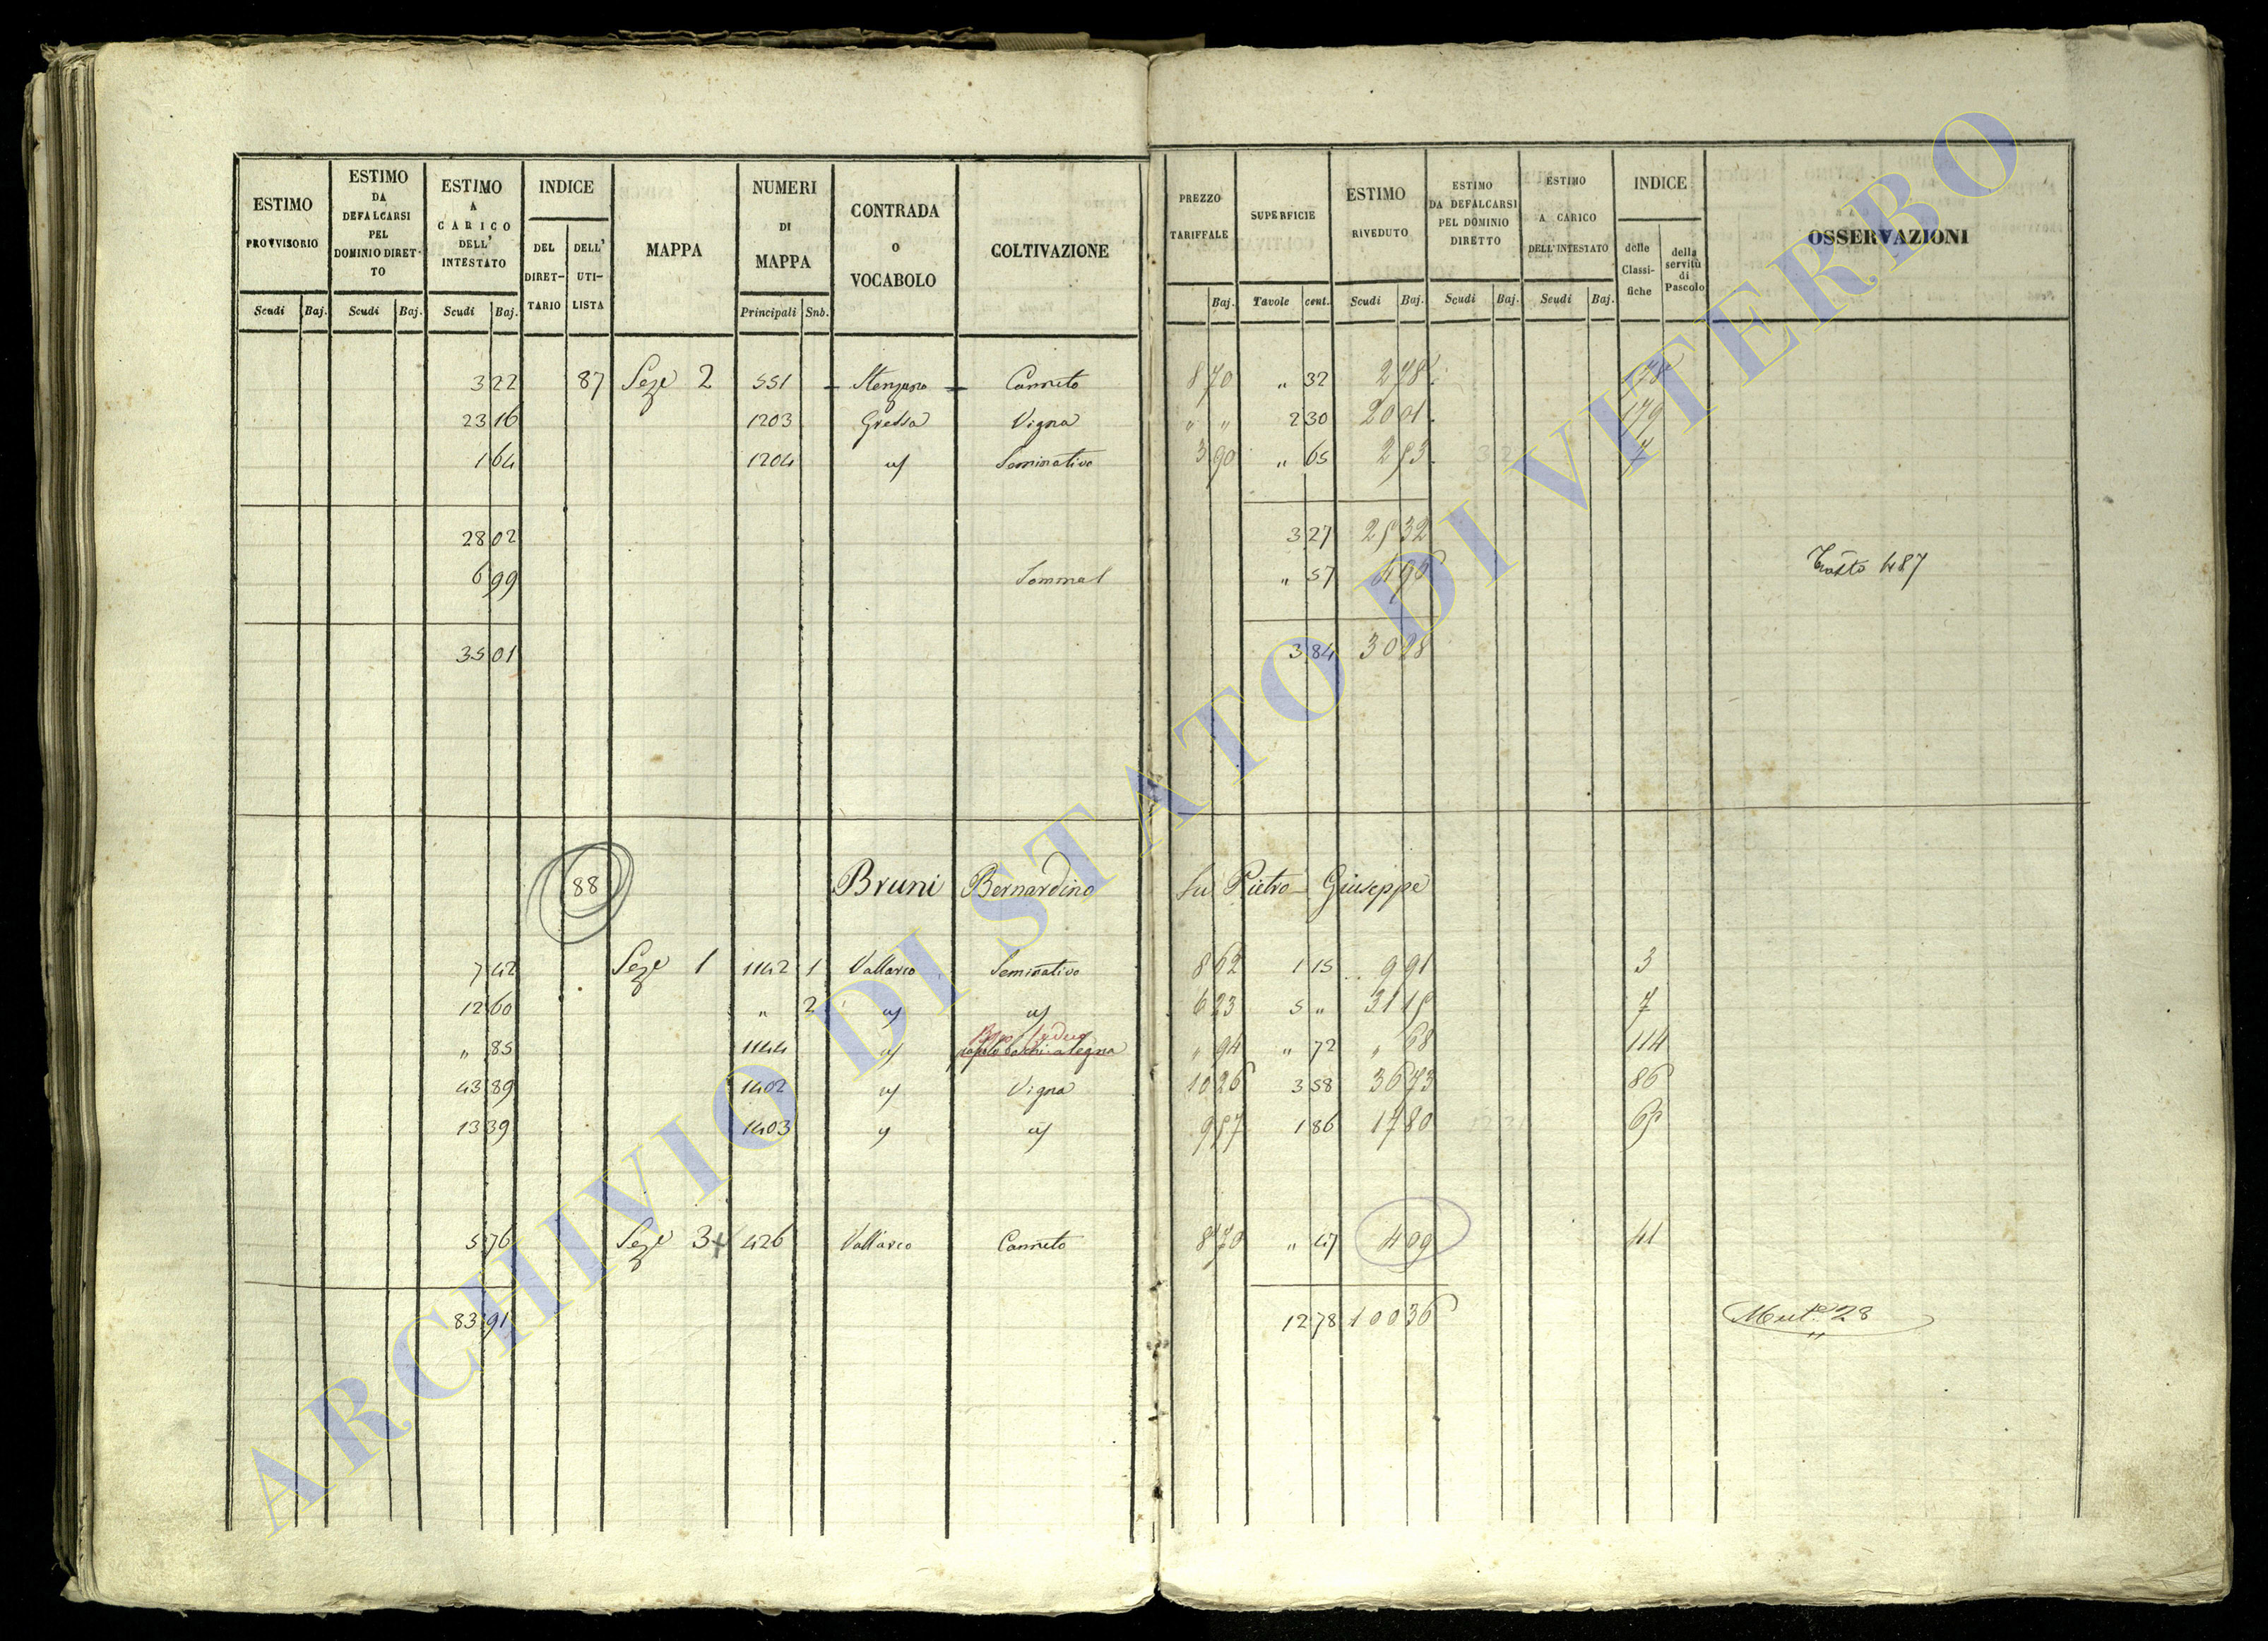 ESTIMO PROVVISORIO Scudi Baj.
ESTIMO DA DEFALCARSI PEL DOMINIO DIRET-TO Scudi Baj.
ESTIMO A CARICO DELL' INTESTATO Scudi Baj.
INDICE DEL DIRET-TARIO DELL' UTI-LISTA
MAPPA
NUMERI DI MAPPA Principali Snb.
CONTRADA O VOCABOLO
COLTIVAZIONE
PREZZO TARIFFALE Baj.
SUPERFICIE Tavole cent.
ESTIMO RIVEDUTO Scudi Baj.
ESTIMO DA DEFALCARSI PEL DOMINIO DIRETTO Scudi Baj.
ESTIMO A CARICO DELL'INTESTATO Scudi Baj.
INDICE delle Classi-fiche della servitù di Pascolo
OSSERVAZIONI
3 22 87 Seze 2 551 Canneto 8 70 " 32 2 78 178
23 16 1203 Vigna " " 2 30 20 01 179
1 64 1204 Seminativo 3 90 " 65 2 53 7
28 02 3 27 25 32
6 99 " 57 4 96
35 01 3 84 30 28
88 Bruni Bernardino fu Pietro Giuseppe
7 42 Seze 1 1142 1 Vallarco Seminativo 8 62 1 15 9 91 3
12 60 " 2 6 23 5 " 31 15 7
" 85 1144 " 94 " 72 " 68 114
43 89 1402 Vigna 10 26 3 58 36 73 86
13 39 1403 9 57 1 86 17 80 65
5 76 Seze 3 426 Vallarco Canneto 8 70 " 47 4 09 41
83 91 12 78 100 36 Mut.e 28
ARCHIVIO DI STATO DI VITERBO